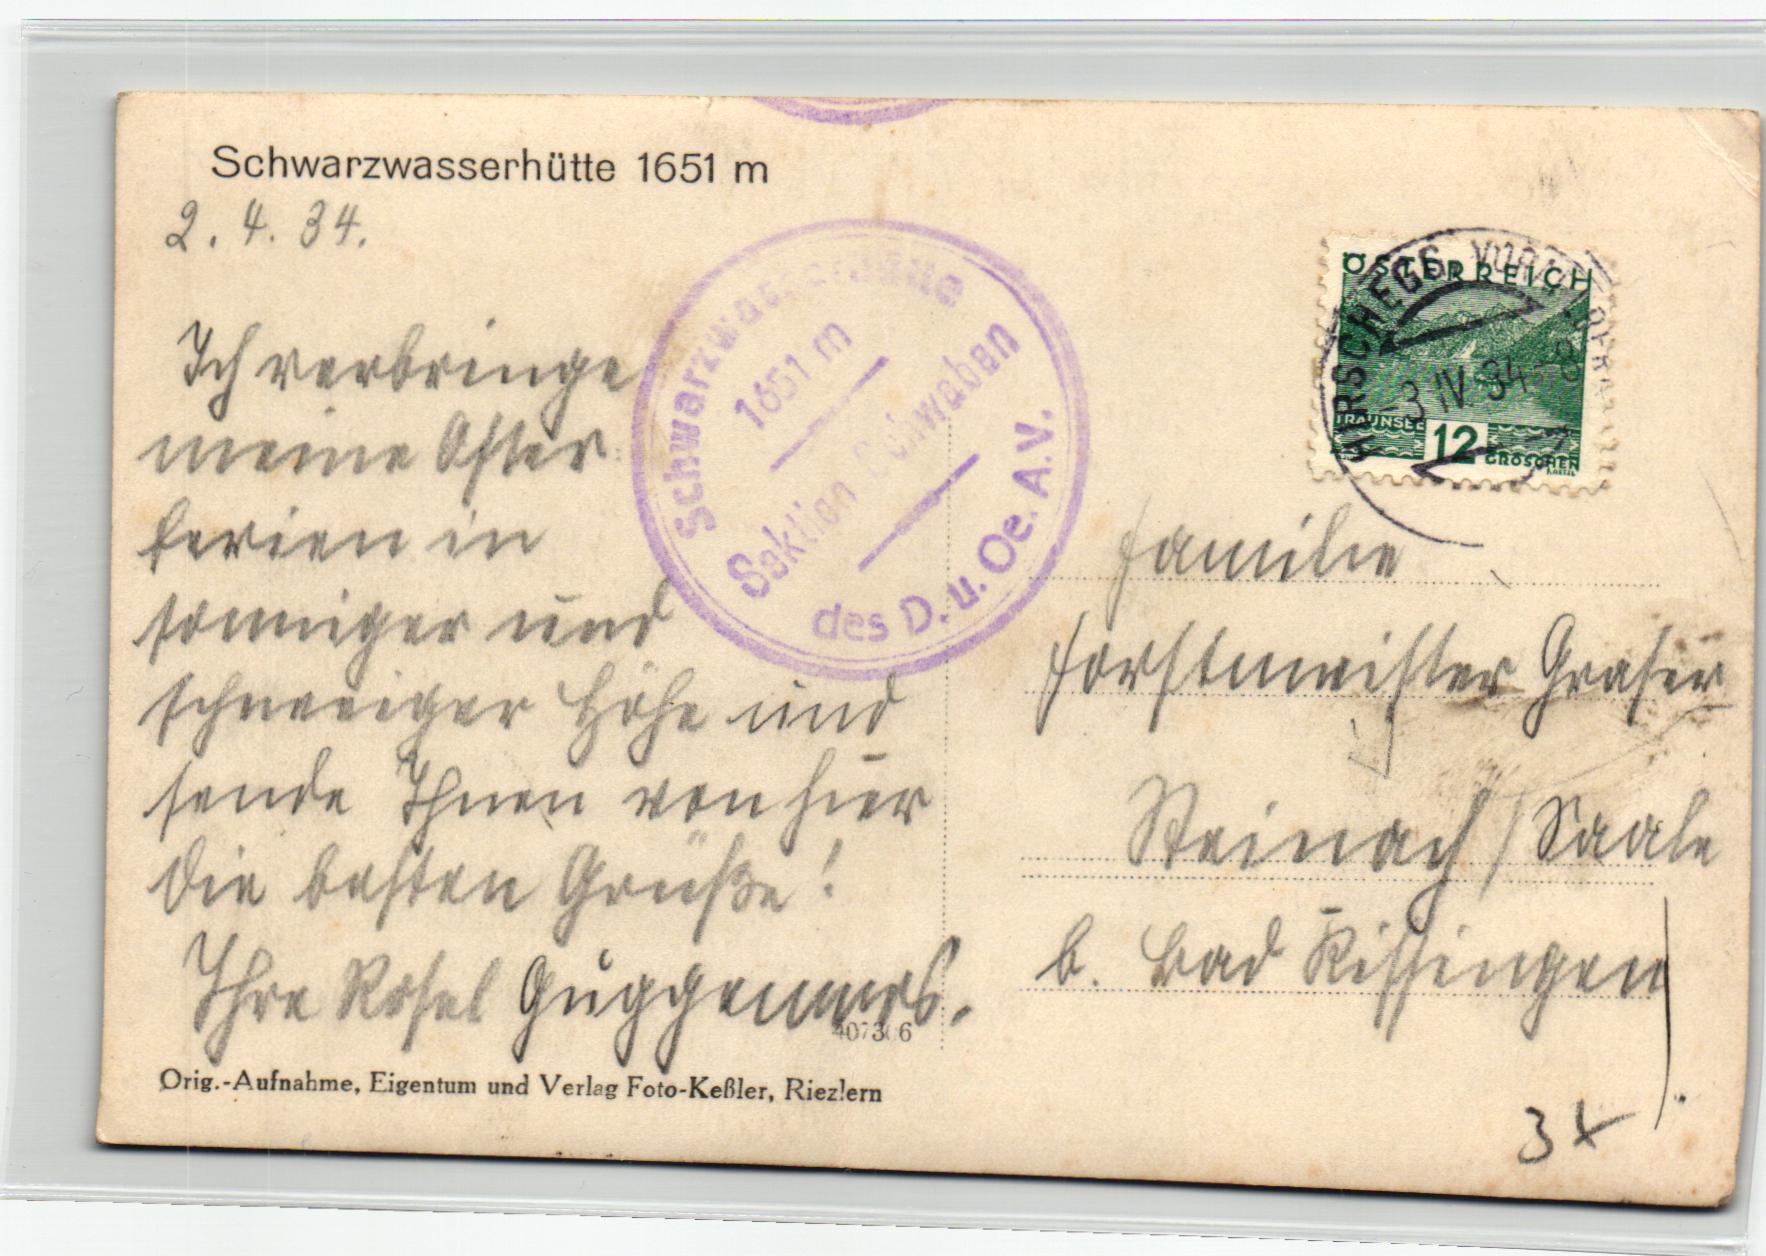 Schwarzwasserhütte 1651 m
2. 4. 34.
Ich verbringe
meine Oster
ferien in
sonniger und
schneeiger Höhe und
sende Ihnen von hier
die besten Grüße!
Ihre Rosel
Orig.-Aufnahme, Eigentum und Verlag Foto-Keßler, Riezlern
Schwarzwasserhütte
1651 m
Sektion Schwaben
des D. u. Oe. A.V.
ÖSTERREICH
TRAUNSEE
12 GROSCHEN
HIRSCHEGG
3 IV. 34
Familie
Forstmeister Graser
Steinach / Saale
b. Bad Kissingen